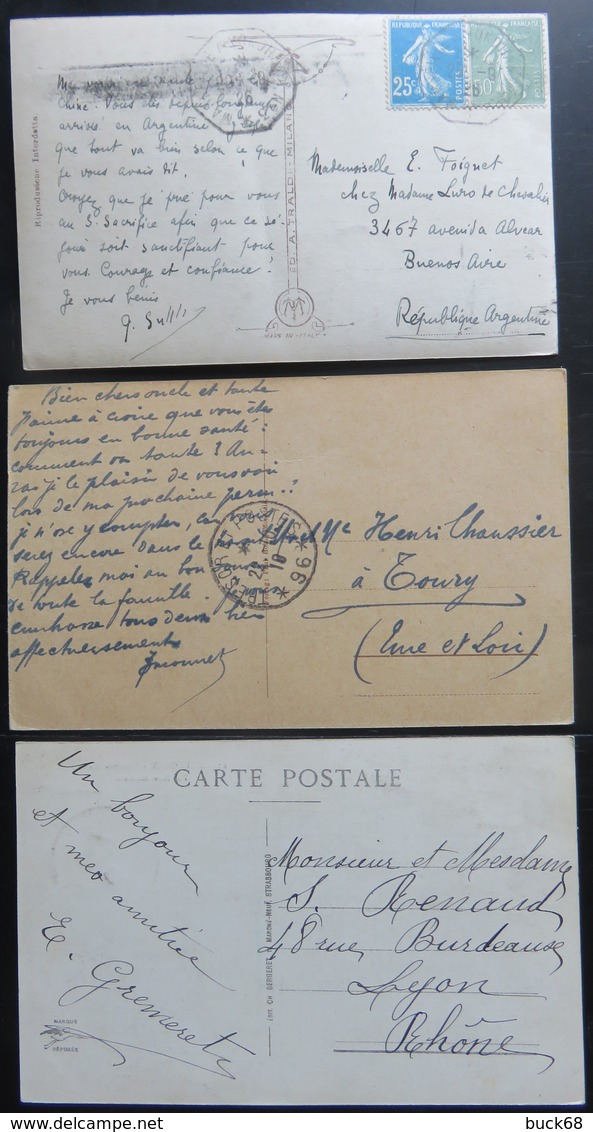 Chine. Vous êtes depuis longtemps
arrivée en Argentine
que tout va bien selon ce que
je vous avais dit.
Croyez que je prie pour vous
au S. Sacrifice afin que ce sé-
jour soit sanctifiant pour
vous. Courage et confiance.
Je vous bénis
Riproduzione Interdetta
ED. A. TRALDI - MILANO
MADE IN ITALY
REPUBLIQUE FRANÇAISE
25c
POSTES
FRANÇAISE
50c
Mademoiselle E. Foignet
chez Madame Luro de Chevalier
3467 avenida Alvear
Buenos Aire
République Argentine
Bien chers oncle et tante
J'aime à croire que vous êtes
toujours en bonne santé :
comment va tante ? Au-
rai je le plaisir de vous voir
lors de ma prochaine perm..?
je n'ose y compter, car vous
serez encore dans le
Rappelez moi au bon
de toute la famille. Je vous
embrasse tous deux bien
affectueusement
TRESOR ET POSTES * 96 *
Mr et Me Henri Chaussier
à Toury
(Eure et Loir)
CARTE POSTALE
Un bonjour
et mes amitiés
E. Gremeretz
MARQUE
DÉPOSÉE
IMP. CH. BERGERET, MARQUE-NEUF, STRASBOURG
Monsieur et Mesdames
S. Renaud
48 rue Burdeause
Lyon
Rhône
buck68